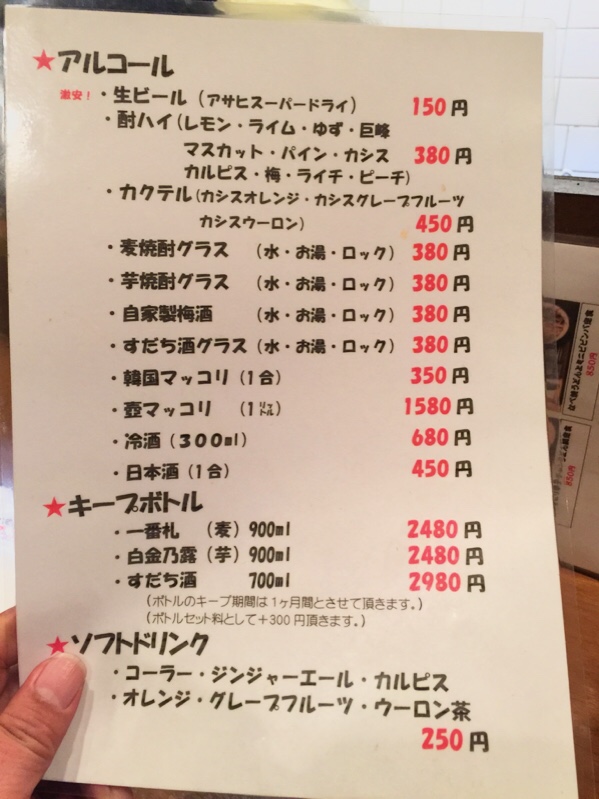 ★アルコール
激安!・生ビール(アサヒスーパードライ) 150円
・酎ハイ(レモン・ライム・ゆず・巨峰
マスカット・パイン・カシス 380円
カルピス・梅・ライチ・ピーチ)
・カクテル(カシスオレンジ・カシスグレープフルーツ
カシスウーロン) 450円
・麦焼酎グラス (水・お湯・ロック) 380円
・芋焼酎グラス (水・お湯・ロック) 380円
・自家製梅酒 (水・お湯・ロック) 380円
・すだち酒グラス(水・お湯・ロック) 380円
・韓国マッコリ(1合) 350円
・壺マッコリ (1㍑) 1580円
・冷酒(300ml) 680円
・日本酒(1合) 450円
★キープボトル
・一番札 (麦)900ml 2480円
・白金乃露(芋)900ml 2480円
・すだち酒 700ml 2980円
(ボトルのキープ期間は1ヶ月間とさせて頂きます。)
(ボトルセット料として+300円頂きます。)
★ソフトドリンク
・コーラー・ジンジャーエール・カルピス
・オレンジ・グレープフルーツ・ウーロン茶
250円
850円
850円